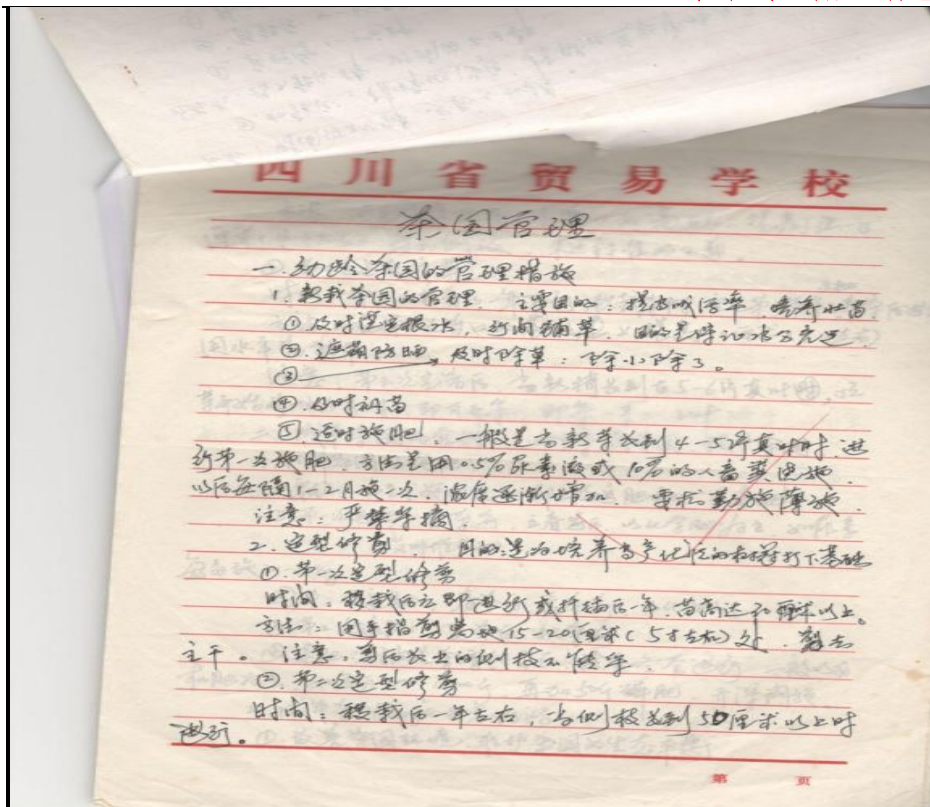 四川省贸易学校
茶园管理
一.幼龄茶园的管理措施
1.新栽茶园的管理 主要目的:提高成活率 培养壮苗
①及时浇定根水,行间铺草,目的是保证水分充足
②.遮荫防晒、及时除草:除小除了。
③
④.及时补苗
⑤.适时施肥,一般是当新芽长到4-5片真叶时,进
行第一次施肥,方法是用0.5%尿素液或10%的人畜粪便施,
以后每隔1-2月施一次,浓度逐渐增加,要松勤施薄施.
注意:严禁采摘.
2.定型修剪 目的:是为培养高产优质的树型打下基础
①.第一次定型修剪
时间:移栽后立即进行或扦插后一年,苗高达30厘米以上。
方法:用手指剪离地15-20厘米(5寸左右)处,剪去
主干。注意:剪后长出的侧枝不能采.
②.第二次定型修剪
时间:移栽后一年左右 当侧枝长到50厘米以上时
进行。
第 页